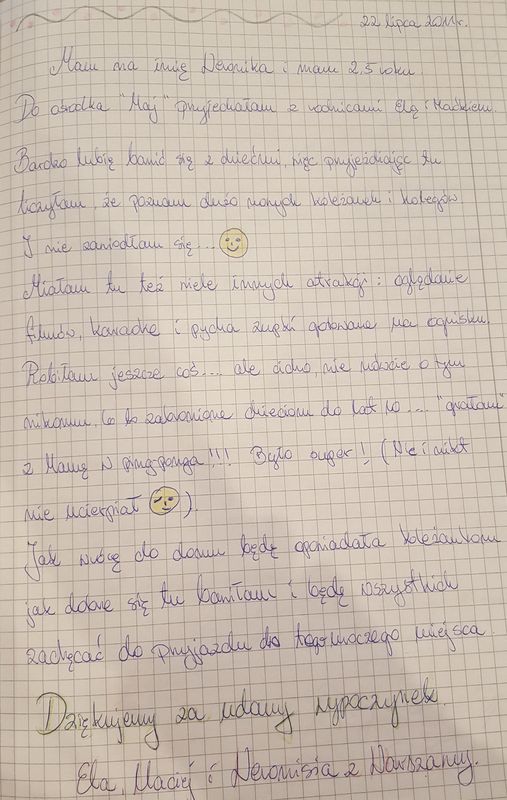 22 lipca 2011r.
Mam na imię Weronika i mam 2,5 roku
Do ośrodka "Maj" przyjechałam z rodzicami Elą i Maćkiem.
Bardzo lubię bawić się z dziećmi, więc przyjeżdżając tu
liczyłam, że poznam dużo nowych koleżanek i kolegów
I nie zawiodłam się...
Miałam tu też wiele innych atrakcji: oglądanie
filmów, karaoke i pycha zupki gotowane na ognisku.
Robiłam jeszcze coś... ale cicho, nie mówcie o tym
nikomu, bo to zabronione dzieciom do lat 10... "grałam"
z Mamą w ping-ponga!!! Było super! (No i nikt
nie ucierpiał ).
Jak wrócę do domu będę opowiadała koleżankom
jak dobrze się tu bawiłam i będę wszystkich
zachęcać do przyjazdu do tego uroczego miejsca
Dziękujemy za udany wypoczynek.
Ela, Maciej i Weronisia z Warszawy.